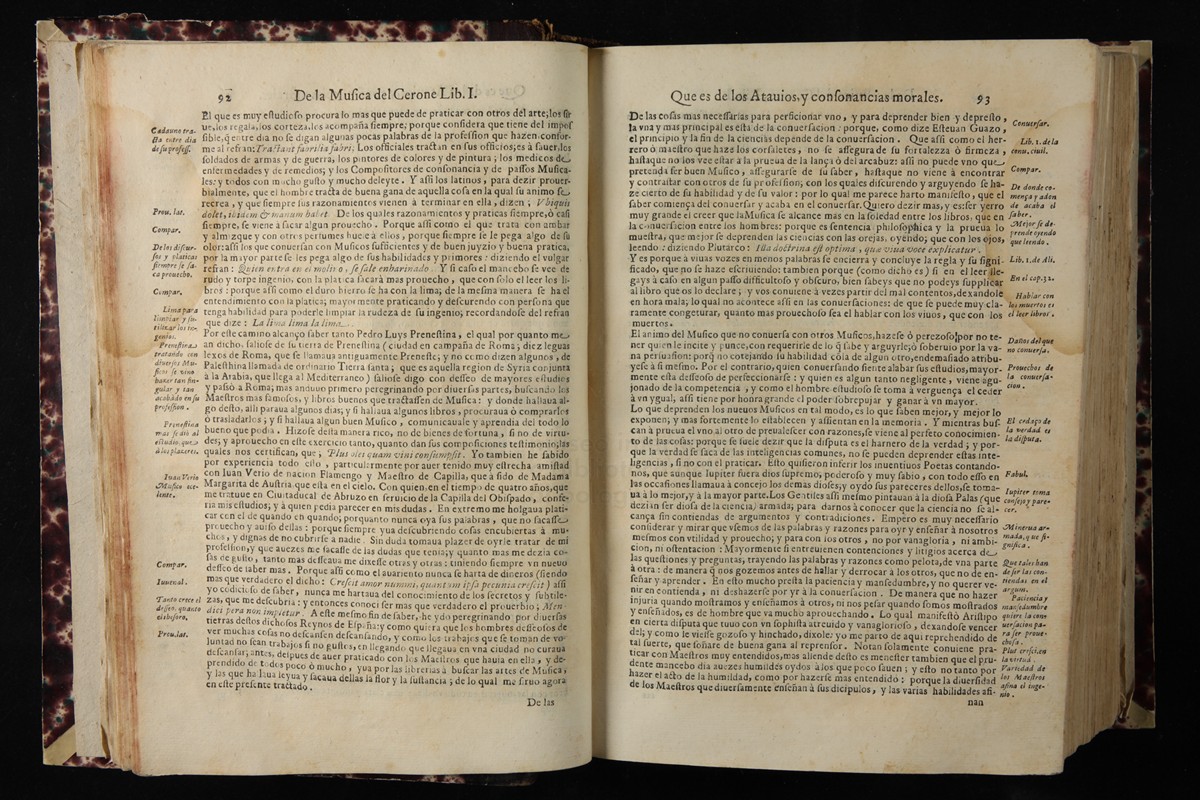 92 De la Musica del Cerone Lib. I.
El que es muy estudioso procura lo mas que puede de praticar con otros del arte; los sir
ue, los regala, los corteza, los acompaña siempre; porque considera que tiene del impos
sible, q̃ entre dia no se digan algunas pocas palabras de la profession que hazen confor-
me al refran: Tractant fabrilia fabri. Los officiales tractan en sus officios; es à sauer, los
soldados de armas y de guerra, los pintores de colores y de pintura; los medicos de
enfermedades y de remedios; y los Compositores de consonancia y de passos Musica-
les: y todos con mucho gusto y mucho deleyte. Y assi los latinos, para dezir prouer-
bialmente, que el hombre tracta de buena gana de aquella cosa en la qual su animo se
recrea, y que siempre sus razonamientos vienen à terminar en ella, dizen; Vbi quis
dolet, ibidem & manum habet. De los quales razonamientos y praticas siempre, ó casi
siempre, se viene à sacar algun prouecho. Porque assi como el que trata con ambar
y almizque y con otros perfumes huele à ellos, porque siempre se le pega algo de su
olor: assi los que conuersan con Musicos sufficientes y de buen juyzio y buena pratica,
por la mayor parte se les pega algo de sus habilidades y primores: diziendo el vulgar
refran: Quien entra en el molino, se sale enharinado. Y si caso el mancebo se vee de
rudo y torpe ingenio, con la platica sacarà mas prouecho, que con solo el leer los li-
bros: porque assi como el duro hierro se ha con la lima; de la mesma manera se ha el
entendimiento con la platica; mayormente praticando y descurendo con persona que
tenga habilidad para poderle limpiar la rudeza de su ingenio, recordandose del refran
que dize: La lima lima la lima.
Por este camino alcanço saber tanto Pedro Luys Prenestina, el qual por quanto me
an dicho, saliose de su tierra de Preneste (ciudad en campaña de Roma; diez leguas
lexos de Roma, que se llamaua antiguamente Preneste; y no como dizen algunos, de
Palestina llamada de ordinario Tierra santa; que es aquella region de Syria conjunta
à la Arabia, que llega al Mediterraneo) saliose digo con desseo de mayores estudios
y passó a Roma; mas anduuo primero peregrinando por diuersas partes, buscando los
Maestros mas famosos, y libros buenos que tractassen de Musica: y donde hallaua al-
go desto, alli paraua algunos dias; y si hallaua algunos libros, procuraua ò comprarlos
ò trasladarlos; y si hallaua algun buen Musico, comunicauale y aprendia del todo lo
bueno que podia. Hizose desta manera rico, no de bienes de fortuna, si no de virtu-
des; y aprouecho en este exercicio tanto, quanto dan sus composiciones testimonio; las
quales nos certifican, que; Plus olei quam vini consumpsit. Yo tambien he sabido
por experiencia todo esto, particularmente por auer tenido muy estrecha amistad
con Iuan Verio de nacion Flamengo y Maestro de Capilla, que à sido de Madama
Margarita de Austria, que esta en el cielo. Con quien, en el tiempo de quatro años, que
me tratuue en Ciuitaducal de Abruzo en seruicio de la Capilla del Obispado, confe-
ria mis estudios; y à quien pedia parecer en mis dudas. En extremo me holgaua plati-
car con el de quando en quando; porquanto nunca oya sus palabras, que no sacasse
prouecho y auiso dellas: porque siempre yua descubriendo cosas encubiertas à mu-
chos, y dignas de no cubrirse a nadie. Sin duda tomaua plazer de oyrle tratar de mi
profession, y que auezes me sacasse de las dudas que tenia; y quanto mas me dezia co-
sas de gusto, tanto mas desseaua me dixesse otras y otras: tiniendo siempre vn nueuo
desseo de saber mas. Porque assi como el auariento nunca se harta de dineros (siendo
mas que verdadero el dicho: Crescit amor nummi, quantum ipsa pecunia crescit) assi
yo codicioso de saber, nunca me hartaua del conocimiento de los secretos y subtile-
zas, que me descubria: y entonces conoci ser mas que verdadero el prouerbio; Men-
dici pera non impletur. A este mesmo fin de saber, he ydo peregrinando por diuersas
tierras destos dichosos Reynos de España: y como quiera que los hombres desseosos de
ver muchas cosas no descansen descansando, y como los trabajos que se toman de vo-
luntad no sean trabajos si no gustos, en llegando que llegaua en vna ciudad no curaua
descansar; antes, despues de auer praticado con los Maestros que hauia en ella, y de-
prendido de todos poco ò mucho, yua por las librerias à buscar las artes de Musica,
y las que hallaua leya y sacaua dellas la flor y la sustancia; de lo qual me siruo agora
en este presente tractado.
De las
Cada uno tra-
cta entre dia
de su profess.
Prou. lat.
Compar.
De los discur-
sos y platicas
siempre se sa-
ca prouecho.
Compar.
Lima para
limbiar y su-
tilizar los in-
genios.
Prenestina
tratando con
diuersos Mu-
sicos se vino
hazer tan sin-
gular y tan
acabado en su
profession.
Prenestina
mas se dio al
estudio, que
à los plazeres.
Iuan Verio
Musico exce-
lente.
Compar.
Iuuenal.
Tanto crece el
desseo, quanto
Prou. lat.
Que es de los Atauios, y consonancias morales. 93
De las cosas mas necessarias para perficionar vno, y para deprender bien y depresto,
la vna y mas principal es esta de la conuersacion: porque, como dize Esteuan Guazo,
el principio y la fin de la ciencias depende de la conuersacion. Que assi como el her-
rero ò maestro que haze los corsaletes, no se assegura de su fortaleza ò firmeza,
hastaque no los vee estar à la prueua de la lança ó del arcabuz: assi no puede vno que
pretenda ser buen Musico, assegurarse de su saber, hastaque no viene à encontrar
y contrastar con otros de su profession; con los quales discurendo y arguyendo se ha-
ze cierto de su habilidad y de su valor: por lo qual me parece harto manifesto, que el
saber comiença del conuersar y acaba en el conuersar. Quiero dezir mas, y es: ser yerro
muy grande el creer que la Musica se alcance mas en la soledad entre los libros, que en
la conuersacion entre los hombres: porque es sentencia philosophica y la prueua lo
muestra, que mejor se deprenden las ciencias con las orejas, oyendo; que con los ojos,
leendo: diziendo Plutarco: Illa doctrina est optima, qua viua voce explicatur.
Y es porque à viuas vozes en menos palabras se encierra y concluye la regla y su signi-
ficado, que no se haze escriuiendo: tambien porque (como dicho es) si en el leer lle-
gays à caso en algun passo difficultoso y obscuro, bien sabeys que no podeys supplicar
al libro que os lo declare; y vos conuiene à vezes partir del mal contentos, dexandole
en hora mala; lo qual no acontece assi en las conuersaciones: de que se puede muy cla-
ramente congeturar, quanto mas prouechoso sea el hablar con los viuos, que con los
muertos.
El animo del Musico que no conuersa con otros Musicos, hazese ó perezoso, por no te-
ner quien le incite y punce, con requerirle de lo q̃ sabe y arguyrle; ó soberuio por la va-
na persuasion: porq̃ no cotejando su habilidad cõ la de algun otro, endemasiado attribu-
yese à si mesmo. Por el contrario, quien conuersando siente alabar sus estudios, mayor-
mente esta desseoso de perseccionarse: y quien es algun tanto negligente, viene agu-
jonado de la competencia, y como el hombre estudioso se toma à verguença el ceder
à vn ygual, assi tiene por honra grande el poder sobrepujar y ganar à vn mayor.
Lo que deprenden los nueuos Musicos en tal modo, es lo que saben mejor, y mejor lo
exponen; y mas fortemente lo establecen y assientan en la memoria. Y mientras bus-
can à prueua el vno al otro de preualescer con razones, se viene al perfeto conocimien-
to de las cosas: porque se suele dezir que la disputa es el harnero de la verdad; y por-
que la verdad se saca de las inteligencias comunes, no se pueden deprender estas inte-
ligencias, si no con el praticar. Esto quisieron inferir los inuentiuos Poetas contando-
nos, que aunque Iupiter fuera dios supremo, poderoso y muy sabio, con todo esso en
las occasiones llamaua à concejo los demas dioses, y oydo sus pareceres dellos, se toma-
ua à lo mejor, y à la mayor parte. Los Gentiles assi mesmo pintauan à la diosa Palas (que
dezian ser diosa de la ciencia) armada; para darnos à conocer que la ciencia no se al-
cança sin contiendas de argumentos y contradiciones. Empero es muy necessario
considerar y mirar que vsemos de las palabras y razones para oyr y enseñar à nosotros
mesmos con vtilidad y prouecho; y para con los otros, no por vanagloria, ni ambi-
cion, ni ostentacion: Mayormente si entreuienen contenciones y litigios acerca de
las questiones y preguntas, trayendo las palabras y razones como pelota, de vna parte
à otra: de manera q̃ nos gozemos antes de hallar y derrocar à los otros, que no de en-
señar y aprender. En esto mucho presta la paciencia y mansedumbre, y no querer ve-
nir en contienda, ni deshazerse por yr à la conuersacion. De manera que no hazer
injuria quando mostramos y enseñamos à otros, ni nos pesar quando somos mostrados
y enseñados, es de hombre que va mucho aprouechando. Lo qual manifesto Aristipo
en cierta disputa que tuuo con vn sophista atreuido y vanaglorioso, dexandose vencer
del; y como le viesse gozoso y hinchado, dixole: yo me parto de aqui reprehendido de
tal suerte, que soñarè de buena gana al reprensor. Notan solamente conuiene pra-
ticar con Musicos muy entendidos, mas aliende desto es menester tambien que el pru-
dente mancebo dia auezes humildes oydos à los que poco sauen; y esto no tanto por
hazer el acto de la humildad, como por hazerse mas entendido: porque la diuersidad
de los Maestros que diuersamente enseñan à sus dicipulos, y las varias habilidades afi-
nan
Conuersar.
Lib. 1. de la
conu. ciuil.
Compar.
De donde co-
mença y adon
de acaba el
saber.
Mejor se de-
prende oyendo
que leendo.
Lib. 1. de Ali.
En el cap. 32.
Hablar con
los muertos es
el leer libros.
Daños del que
no conuersa.
Prouechos de
la conuersa-
cion.
El cedaço de
la verdad es
la disputa.
Fabul.
Iupiter toma
consejo y pare-
cer.
Minerua ar-
mada, que si-
gnifica.
Que tales han
de ser las con-
tiendas en el
argum.
Paciencia y
mansedumbre
quiere la con-
uersacion pa-
ra ser proue-
chosa.
Plut. crisci. en
la virtud.
Variedad de
los Maestros
afina el inge-
nio.